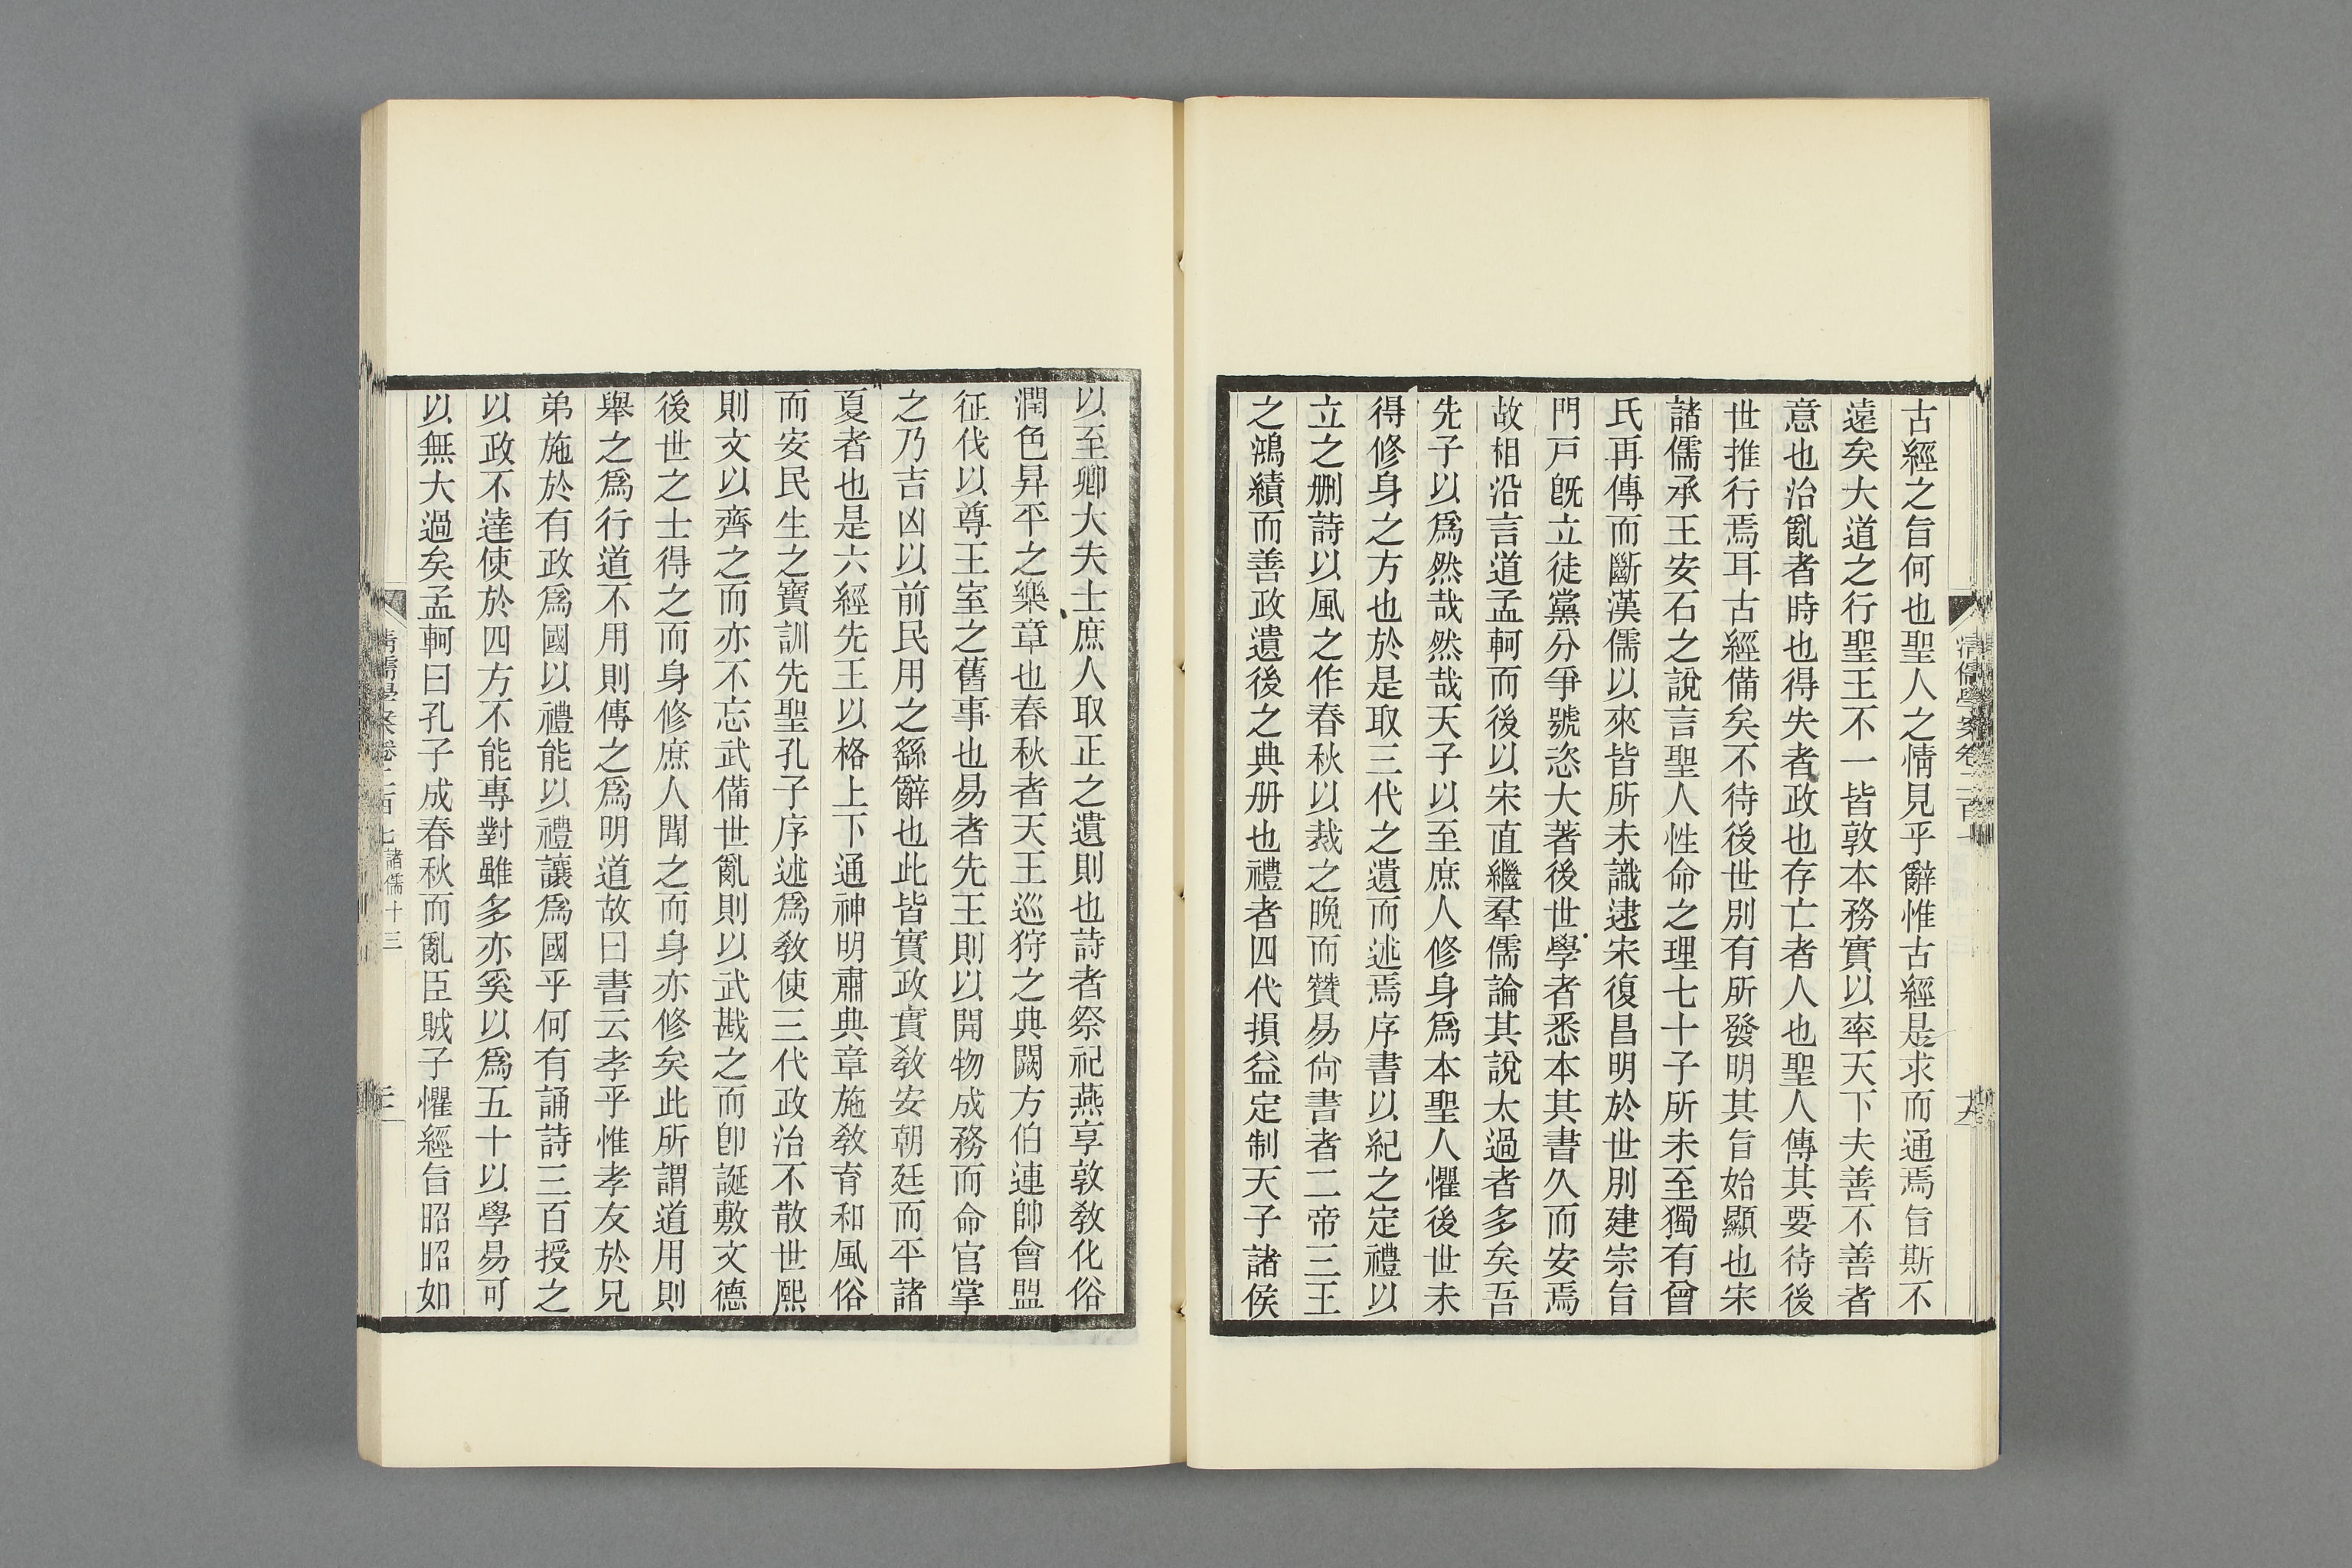 古經之旨何也聖人之情見乎辭惟古經是求而通焉旨斯不
遠矣大道之行聖王不一皆敦本務實以率天下夫善不善者
意也治亂者時也得失者政也存亡者人也聖人傳其要待後
世推行焉耳古經備矣不待後世別有所發明其旨始顯也宋
諸儒承王安石之說言聖人性命之理七十子所未至獨有曾
氏再傳而斷漢儒以來皆所未識逮宋復昌明於世別建宗旨
門戶旣立徒黨分爭號恣大著後世學者悉本其書久而安焉
故相沿言道孟軻而後以宋直繼羣儒論其說太過者多矣吾
先子以爲然哉然哉天子以至庶人修身爲本聖人懼後世未
得修身之方也於是取三代之遺而述焉序書以紀之定禮以
立之刪詩以風之作春秋以裁之晚而贊易尙書者二帝三王
之鴻績而善政遺後之典册也禮者四代損益定制天子諸侯
以至卿大夫士庶人取正之遺則也詩者祭祀燕享敦敎化俗
潤色昇平之樂章也春秋者天王巡狩之典闕方伯連帥會盟
征伐以尊王室之舊事也易者先王則以開物成務而命官掌
之乃吉凶以前民用之繇辭也此皆實政實敎安朝廷而平諸
夏者也是六經先王以格上下通神明肅典章施敎育和風俗
而安民生之寶訓先聖孔子序述爲敎使三代政治不散世熙
則文以齊之而亦不忘武備世亂則以武戡之而卽誕敷文德
後世之士得之而身修庶人聞之而身亦修矣此所謂道用則
舉之爲行道不用則傳之爲明道故曰書云孝乎惟孝友於兄
弟施於有政爲國以禮能以禮讓爲國乎何有誦詩三百授之
以政不達使於四方不能專對雖多亦奚以爲五十以學易可
以無大過矣孟軻曰孔子成春秋而亂臣賊子懼經旨昭昭如
清儒學案卷二百七 諸儒十三